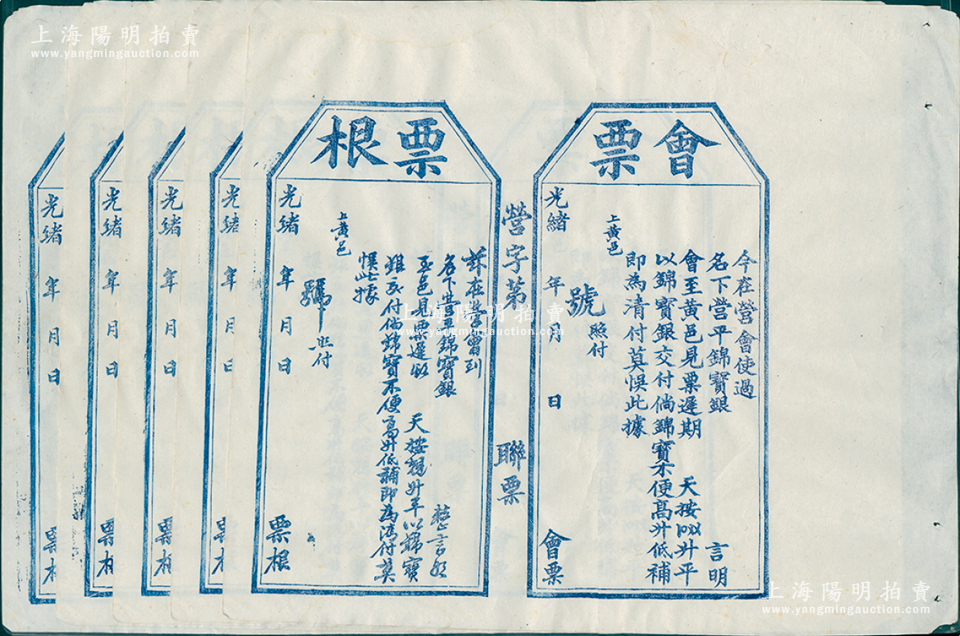 上海陽明拍賣
www.yangmingauction.com
會票
今在營會使過
名下營平錦寶銀 言明
會至黃邑見票遲期 天按 升平
以錦寶銀交付倘錦寶不便高升低補
即為清付莫悞此據
上黃邑 號 照付
光緒 年 月 日 會票
營字第 聯票
票根
茲在營會到
名下營平錦寶銀
至邑見票遲 天 升平以錦寶
銀交付倘錦寶不便高升低補即為清付莫
悞此據
上黃邑 號 照付
光緒 年 月 日 票根
光緒 年 月 日 票根
光緒 年 月 日 票根
光緒 年 月 日 票根
光緒 年 月 日 票根
上海陽明拍賣
www.yangmingauction.com
上海陽明拍賣
www.yangmingauction.com